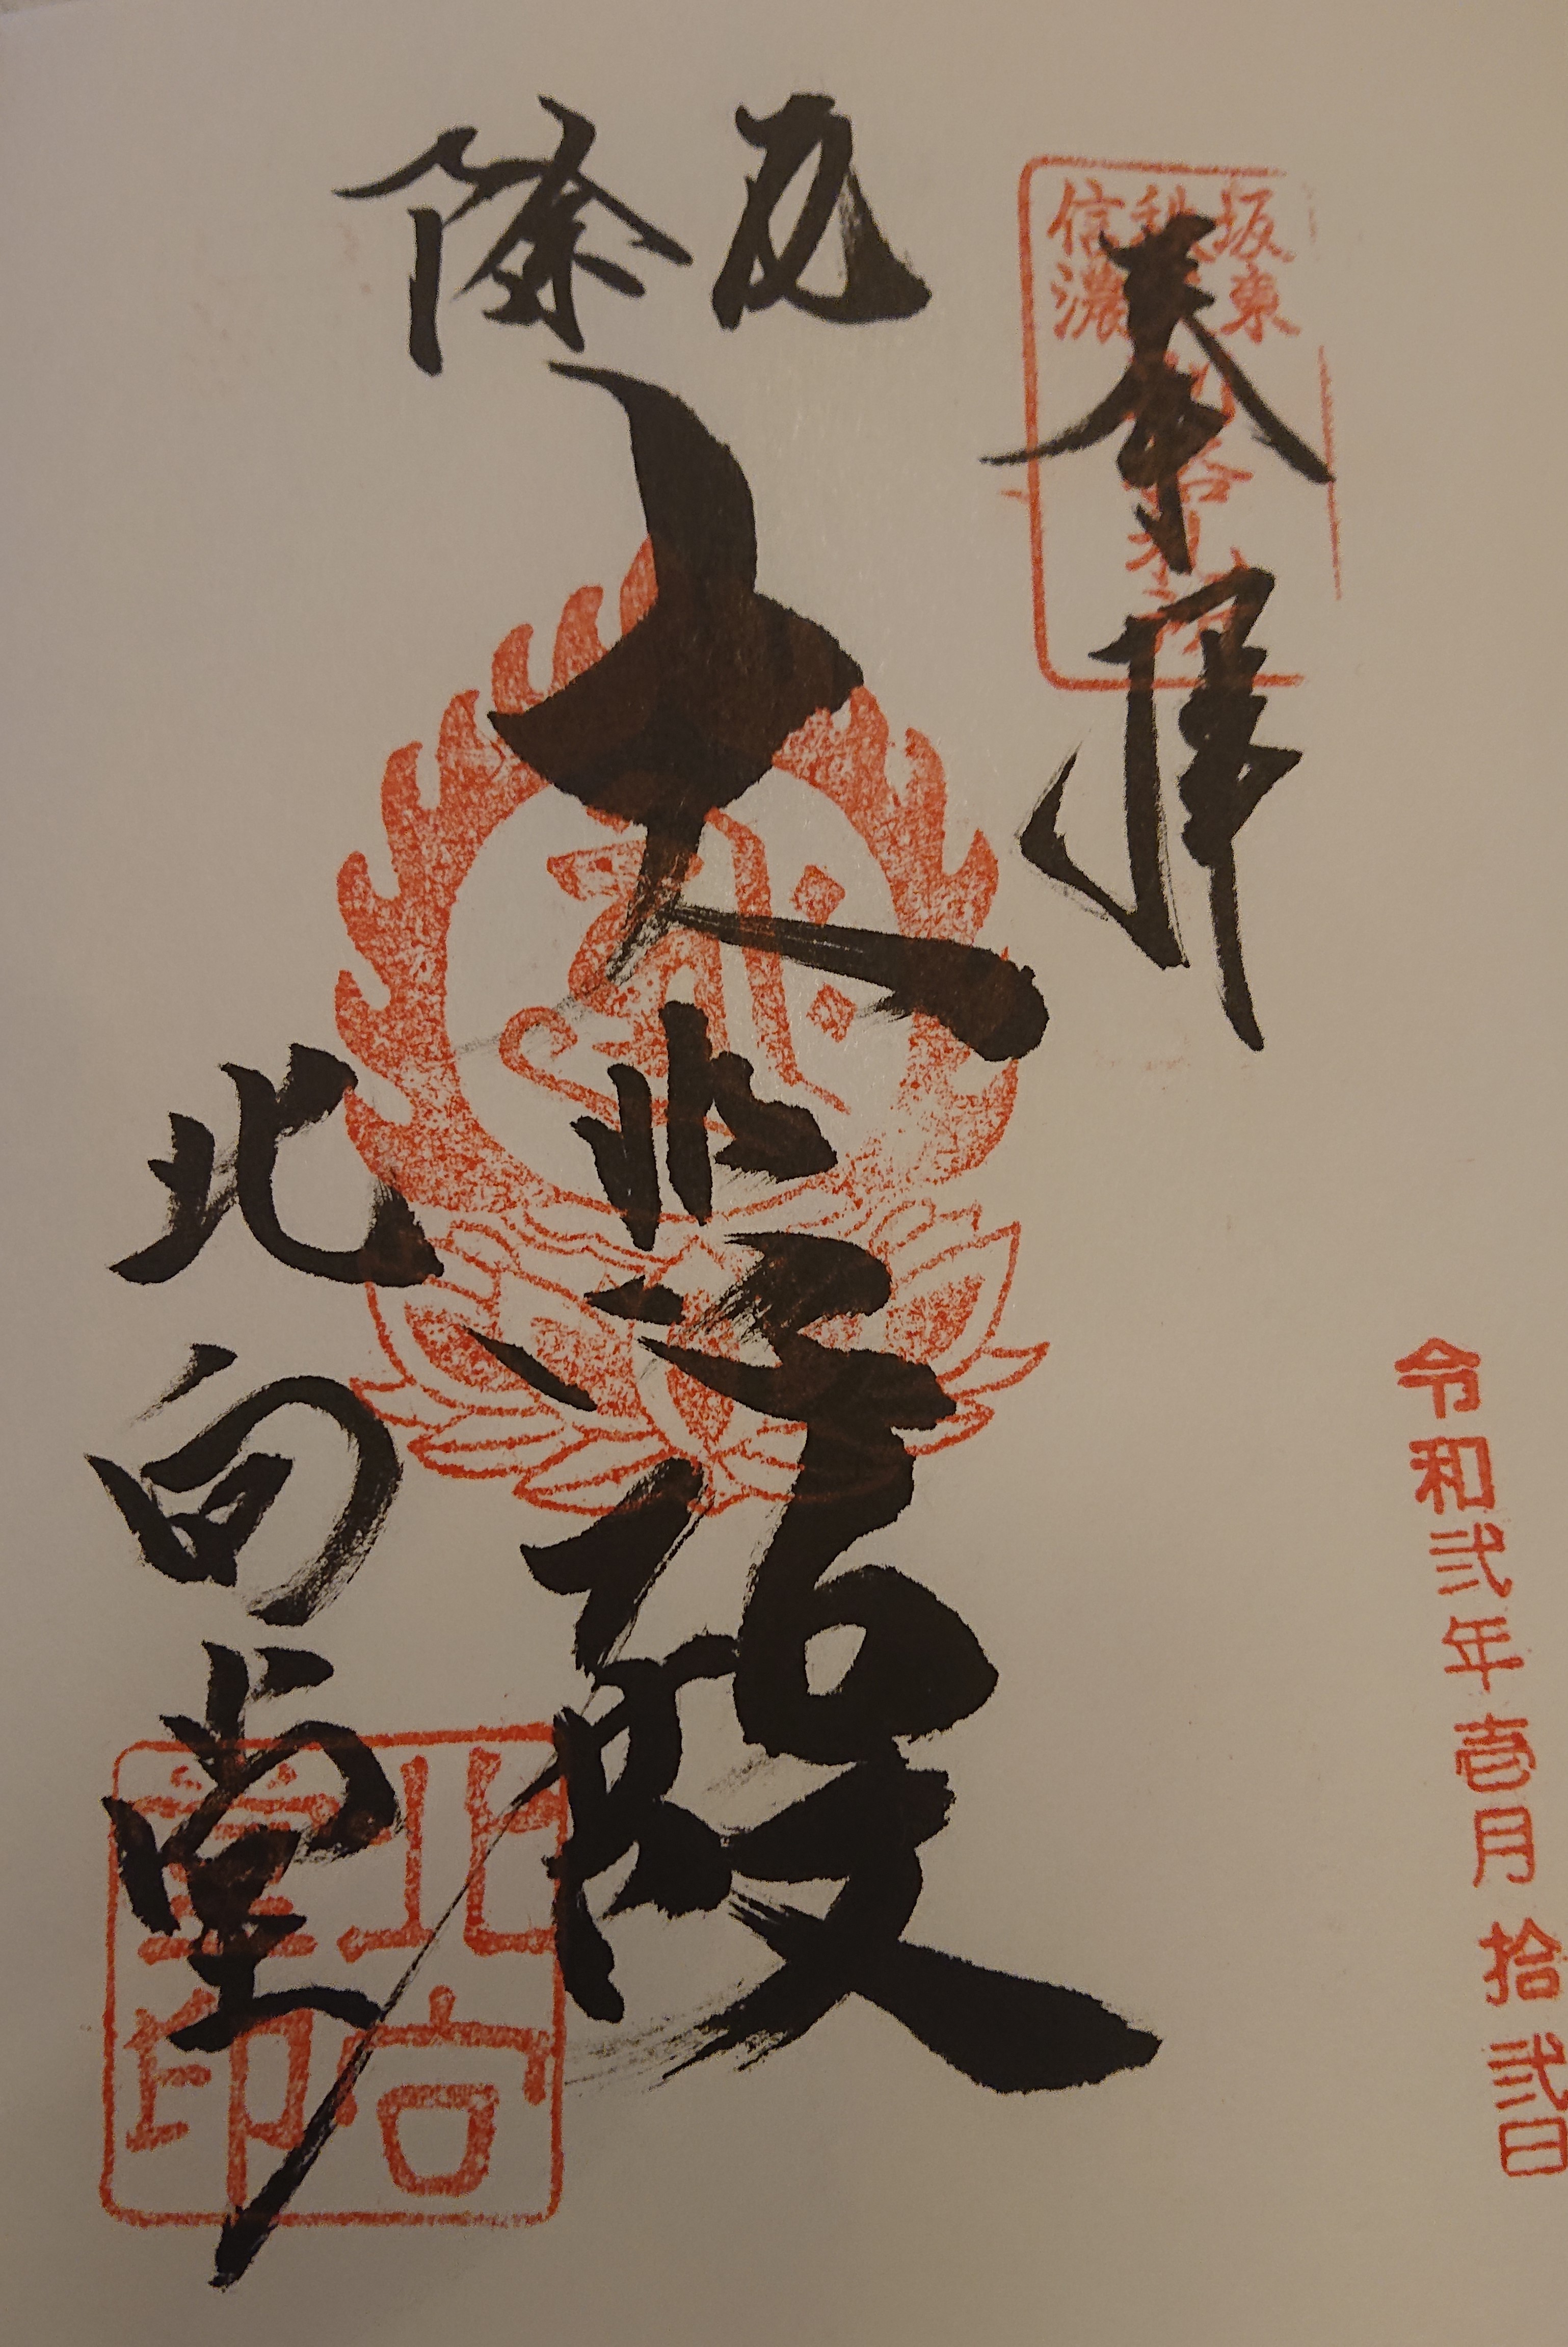 坂東
信濃
奉拝
厄除
大悲殿
北向堂
北向堂印
令和弐年壱月拾弐日